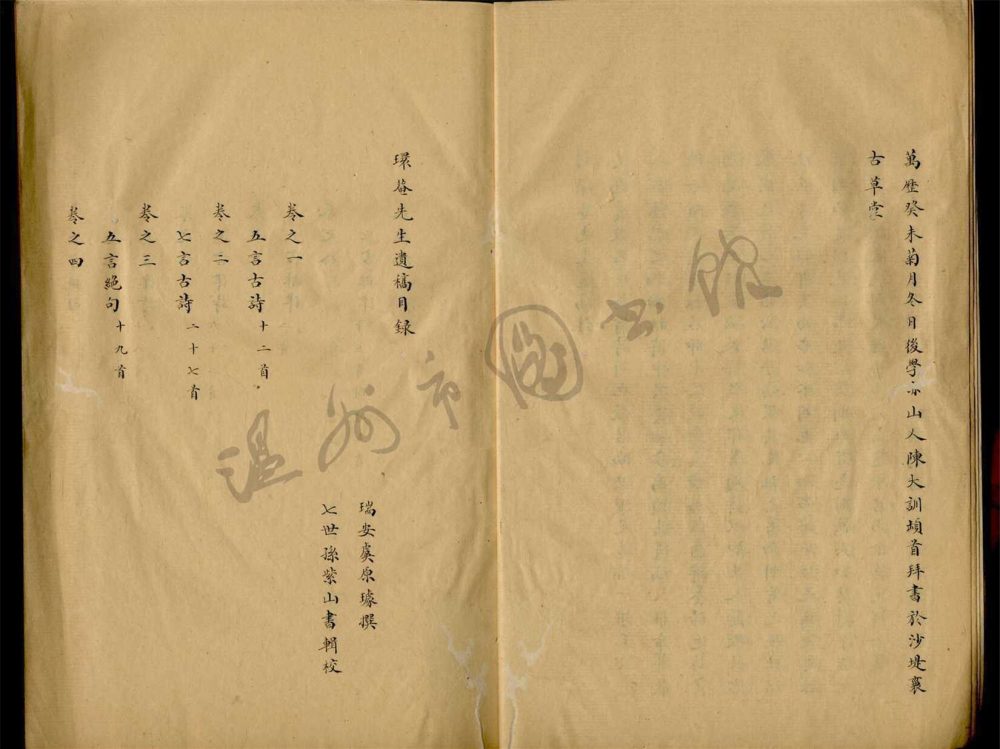 萬歷癸未菊月冬日後學亦山人陳大訓頓首拜書於沙堤裏
古草堂
環菴先生遺稿目錄
瑞安虞原璩撰
七世孫紫山書輯校
卷之一
五言古詩十二首
卷之二
七言古詩二十七首
卷之三
五言絕句十九首
卷之四
溫州市圖書館